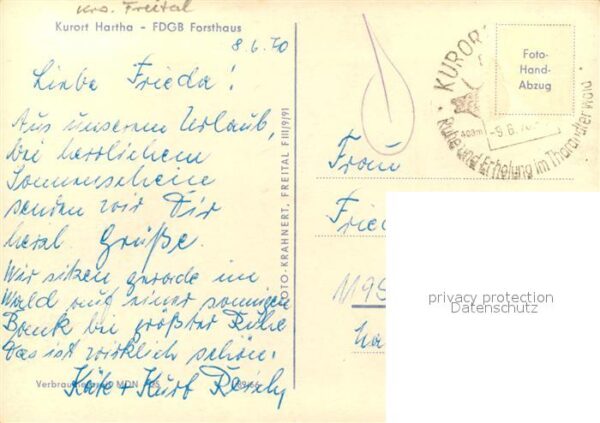 Krs. Freital
Kurort Hartha - FDGB Forsthaus
8.6.70
Liebe Frieda!
Aus unserem Urlaub,
bei herrlichem
Sonnenscheine
senden wir Dir
herzl. Grüße.
Wir sitzen gerade im
Wald auf einer sonnigen
Bank bei größter Ruhe
das ist wirklich schön.
Käte + Kurt
Verbrau MDN
FOTO-KRAHNERT, FREITAL F III/9/91
KUROR
Ruhe und Erholung im Tharandter Wald
-9.6.
Foto-
Hand-
Abzug
Frau
Frie
privacy protection
Datenschutz